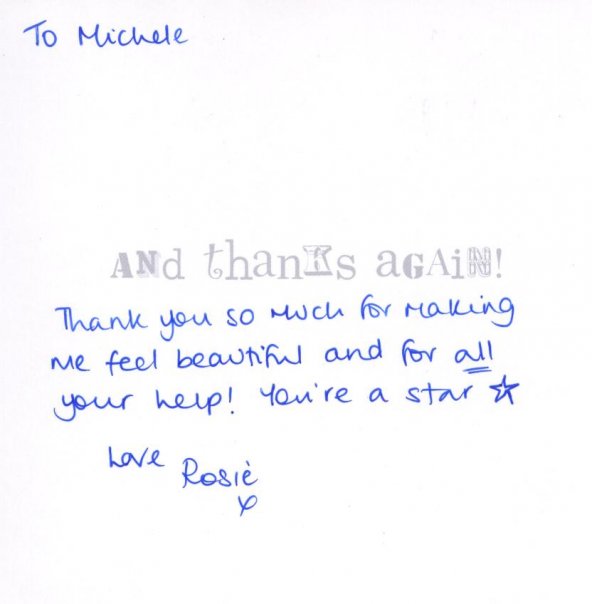 To Michele
ANd thanKs aGAiN!
Thank you so much for making
me feel beautiful and for all
your help! You're a star ☆
Love
Rosie
x